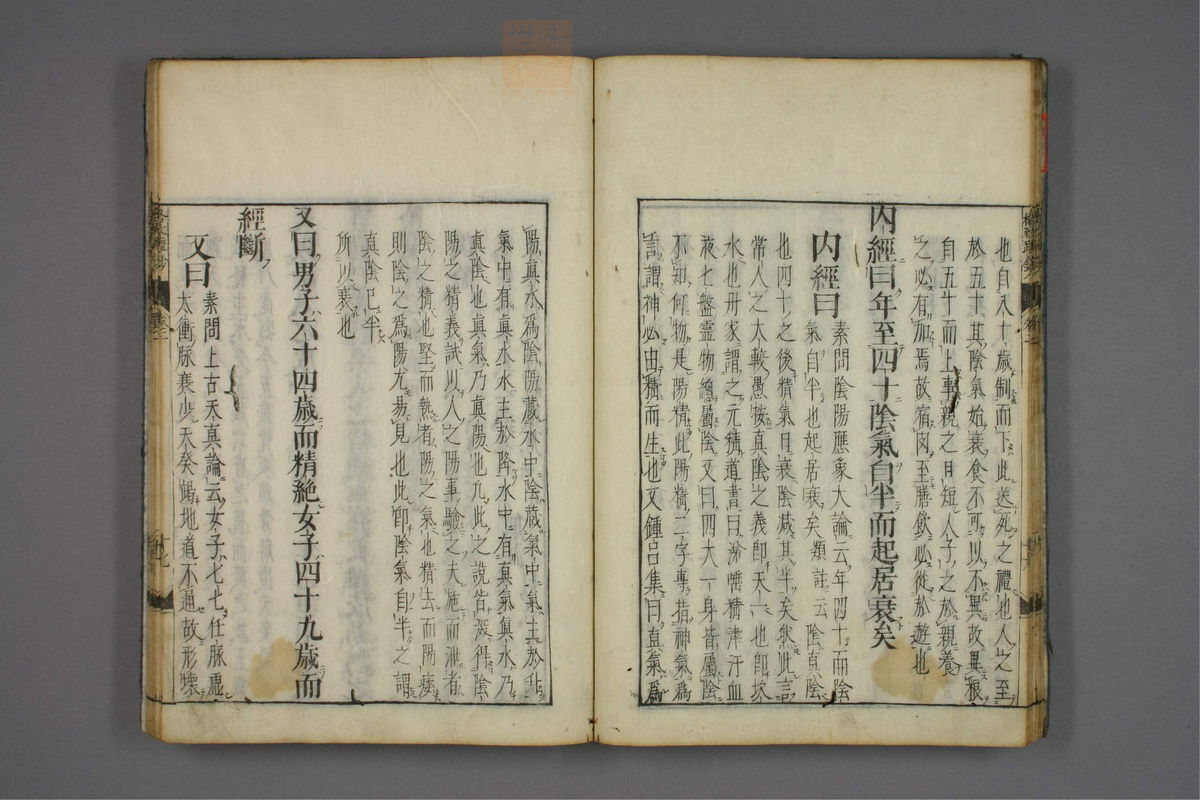 也自八十歳制而下此送死之禮也人之至
於五十其陰氣始衰食不可以不異故異粻
自五十而上事親之日短人子之於親養
之必有加焉故宿肉至膳飲必從於遊也
内經曰年至四十陰氣自半而起居衰矣
内經曰
素問陰陽應象大論云年四十而陰
氣自半也起居衰矣類註云陰真陰
也四十之後精氣日衰陰減其半矣然此言
常人之大較愚按真陰之義即天一也即坎
水也丹家謂之元精道書曰涕唾精津汗血
液七盤靈物總屬陰又曰四大一身皆屬陰
不知何物是陽精此陽精二字專指神氣爲
言謂神必由精而生也又鍾呂集曰真氣爲
陽真水爲陰陽藏水中陰藏氣中氣主於升
氣中有真水水主於降水中有真氣真水乃
真陰也真氣乃真陽也凡此之說皆深得陰
陽之精義試以人之陽事驗之夫施而泄者
陰之精也堅而熱者陽之氣也精去而陽痿
則陰之爲陽尤易見也此即陰氣自半之謂
真陰已半
所以衰也
又曰男子六十四歳而精絶女子四十九歳而
經斷
又曰
素問上古天真論云女子七七任脉虚
太衝脉衰少天癸竭地道不通故形壊